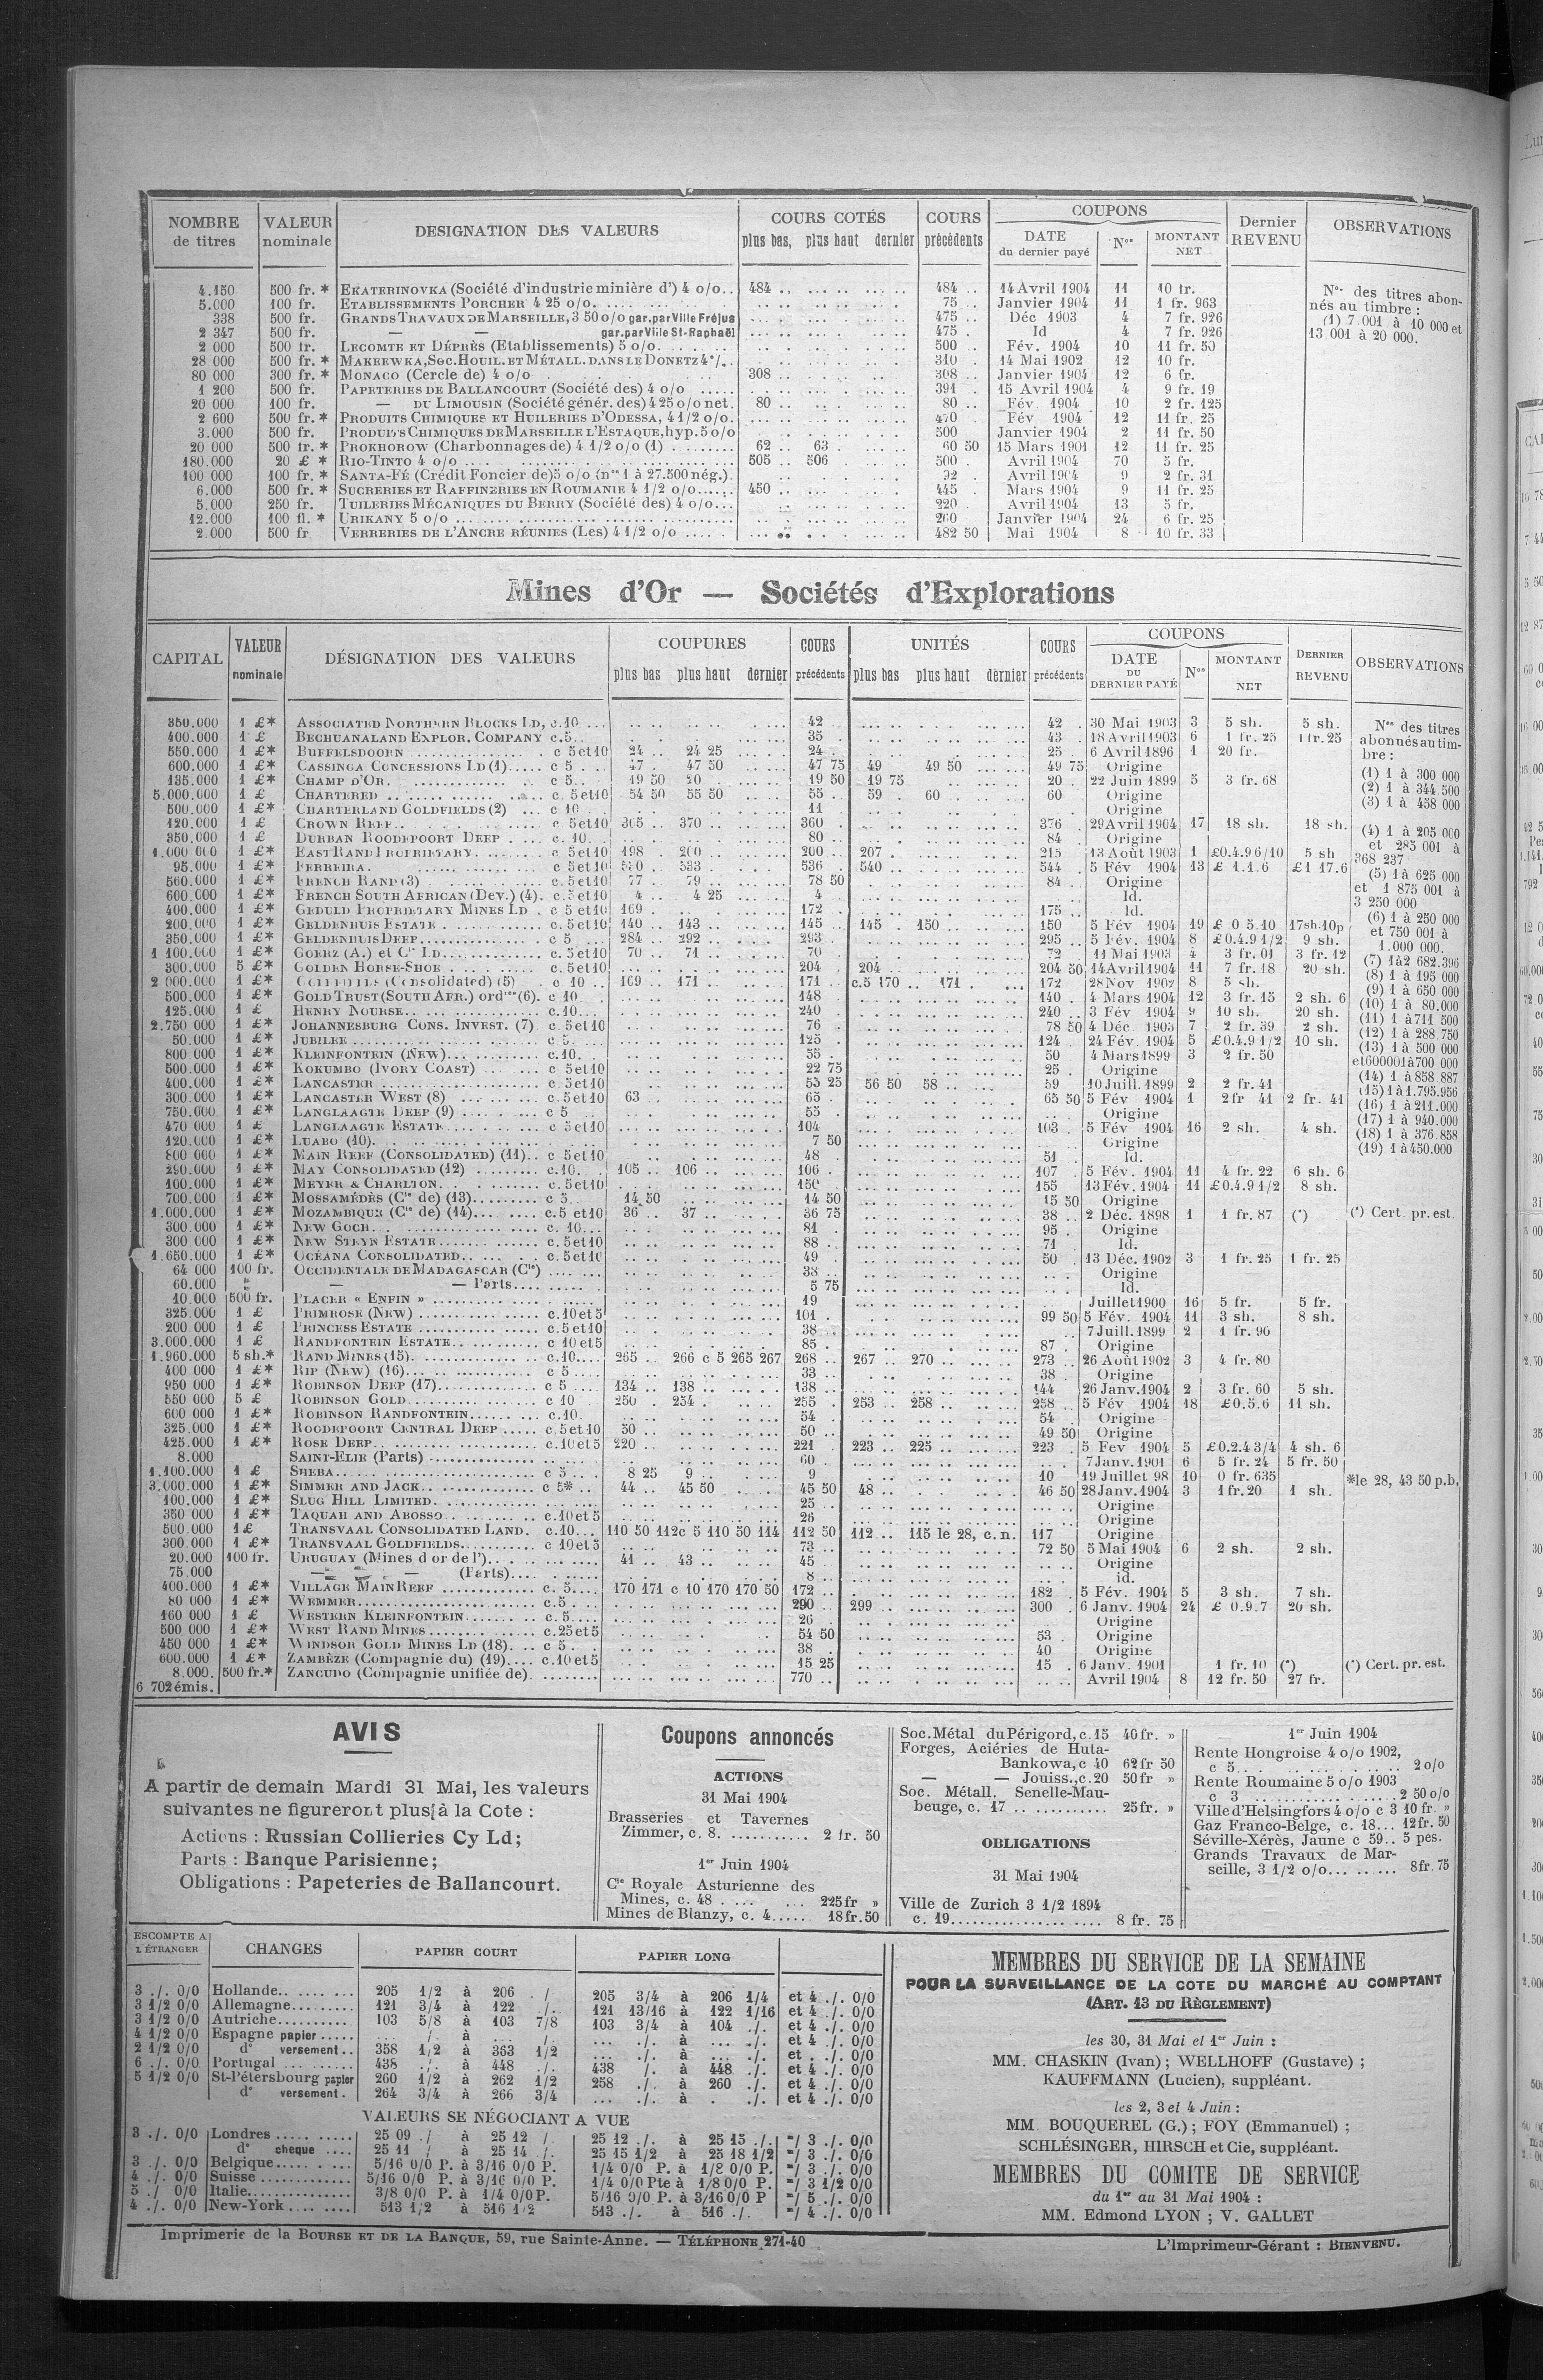 NOMBRE de titres | VALEUR nominale | DESIGNATION DES VALEURS | COURS COTÉS plus bas, plus haut dernier | COURS précédents | COUPONS DATE du dernier payé | Nos | MONTANT NET | Dernier REVENU | OBSERVATIONS
4.150 500 fr. * EKATERINOVKA (Société d'industrie minière d') 4 o/o.. 484 .. 484 .. 14 Avril 1904 11 10 fr.
5.000 100 fr. ETABLISSEMENTS PORCHER 4 25 o/o. 75 .. Janvier 1904 11 1 fr. 963
338 500 fr. GRANDS TRAVAUX DE MARSEILLE, 3 50 o/o gar. par Ville Fréjus 475 .. Déc 1903 4 7 fr. 926
2 347 500 fr. — — gar. par Ville St-Raphaël 475 . Id 4 7 fr. 926
2 000 500 fr. LECOMTE ET DÉPRÈS (Etablissements) 5 o/o. 500 .. Fév. 1904 10 11 fr. 50
28 000 500 fr. * MAKEEWKA, Soc. HOUIL. ET MÉTALL. DANS LE DONETZ 4°/. 310 .. 14 Mai 1902 12 10 fr.
80 000 300 fr. * MONACO (Cercle de) 4 o/o 308 .. 308 .. Janvier 1904 12 6 fr.
1 200 500 fr. PAPETERIES DE BALLANCOURT (Société des) 4 o/o 391 .. 15 Avril 1904 4 9 fr. 19
20 000 100 fr. — DU LIMOUSIN (Société génér. des) 4 25 o/o net. 80 .. 80 .. Fév. 1904 10 2 fr. 125
2 600 500 fr. * PRODUITS CHIMIQUES ET HUILERIES D'ODESSA, 4 1/2 o/o. 470 . Fév 1904 12 11 fr. 25
3.000 500 fr. PRODUITS CHIMIQUES DE MARSEILLE L'ESTAQUE, hyp. 5 o/o 500 Janvier 1904 2 11 fr. 50
20 000 500 fr. * PROKHOROW (Charbonnages de) 4 1/2 o/o (1) 62 .. 63 . 60 50 15 Mars 1901 12 11 fr. 25
180.000 20 £ * RIO-TINTO 4 o/o 505 .. 506 . 500 . Avril 1904 70 5 fr.
100 000 100 fr. * SANTA-FÉ (Crédit Foncier de) 5 o/o (nos 1 à 27.500 nég.). 92 . Avril 1904 9 2 fr. 31
6.000 500 fr. * SUCRERIES ET RAFFINERIES EN ROUMANIE 4 1/2 o/o 450 .. 445 Mars 1904 9 11 fr. 25
5.000 250 fr. TUILERIES MÉCANIQUES DU BERRY (Société des) 4 o/o... 220 Avril 1904 13 5 fr.
12.000 100 fl. * URIKANY 5 o/o 260 Janvier 1904 24 6 fr. 25
2.000 500 fr VERRERIES DE L'ANCRE RÉUNIES (Les) 4 1/2 o/o 482 50 Mai 1904 8 10 fr. 33
Nos des titres abonnés au timbre :
(1) 7.001 à 10 000 et
13 001 à 20 000.
Mines d'Or — Sociétés d'Explorations
CAPITAL | VALEUR nominale | DÉSIGNATION DES VALEURS | COUPURES plus bas plus haut dernier | COURS précédents | UNITÉS plus bas plus haut dernier | COURS précédents | COUPONS DATE DU DERNIER PAYÉ | Nos | MONTANT NET | DERNIER REVENU | OBSERVATIONS
350.000 1 £* ASSOCIATED NORTHERN BLOCKS LD, c.10 42 42 . 30 Mai 1903 3 5 sh. 5 sh.
400.000 1 £ BECHUANALAND EXPLOR. COMPANY c.5.. 35 . 43 . 18 Avril 1903 6 1 fr. 25 1 fr. 25
550.000 1 £* BUFFELSDOORN c 5 et 10 24 .. 24 25 24 . 25 6 Avril 1896 1 20 fr.
600.000 1 £* CASSINGA CONCESSIONS LD (1) c 5 47 . 47 50 47 75 49 49 50 49 75 Origine
135.000 1 £* CHAMP D'OR. c 5.. 19 50 20 19 50 19 75 20 . 22 Juin 1899 5 3 fr. 68
5.000.000 1 £ CHARTERED c. 5 et 10 54 50 55 50 55 .. 59 . 60 60 Origine
500.000 1 £* CHARTERLAND GOLDFIELDS (2) c 10 11 Origine
120.000 1 £ CROWN REEF c. 5 et 10 365 .. 370 .. 360 . 376 . 29 Avril 1904 17 18 sh. 18 sh.
350.000 1 £ DURBAN ROODEPOORT DEEP c. 10. 80 . 84 . Origine
1.000 000 1 £* EAST RAND PROPRIETARY c 5 et 10 198 . 200 .. 200 .. 207 . 215 13 Août 1903 1 £0.4.9 6/10 5 sh
95.000 1 £* FERREIRA. c 5 et 10 530 . 533 536 . 540 .. 544 . 5 Fév 1904 13 £ 1.1.6 £1 17.6
560.000 1 £* FRENCH RAND (3) c. 5 et 10 77 . 79 .. 78 50 84 .. Origine
600.000 1 £* FRENCH SOUTH AFRICAN (Dev.) (4). c. 5 et 10 4 .. 4 25 4 Id.
400.000 1 £* GEDULD PROPRIETARY MINES LD . c 5 et 10 169 . 172 . 175 .. Id.
200.000 1 £* GELDENHUIS ESTATE c. 5 et 10 140 .. 143 .. 145 .. 145 . 150 150 5 Fév 1904 19 £ 0 5.10 17sh.10p
350.000 1 £* GELDENHUIS DEEP c 5 284 .. 292 .. 293 . 295 .. 5 Fév. 1904 8 £0.4.9 1/2 9 sh.
1 100.000 1 £* GOERZ (A.) et Cie LD c. 5 et 10 70 .. 71 70 . 72 11 Mai 1903 4 3 fr. 01 3 fr. 12
300.000 5 £* GOLDEN HORSE-SHOE c. 5 et 10 204 . 204 204 50 14 Avril 1904 11 7 fr. 18 20 sh.
2 000.000 1 £* (Consolidated) (5) c 10 .. 169 .. 171 171 .. c.5 170 .. 171 . 172 28 Nov 1902 8 5 sh.
500.000 1 £* GOLD TRUST (SOUTH AFR.) ordres (6). c 10 148 . 140 . 4 Mars 1904 12 3 fr. 15 2 sh. 6
125.000 1 £ HENRY NOURSE c.10 240 240 .. 3 Fév 1904 9 10 sh. 20 sh.
2.750 000 1 £* JOHANNESBURG CONS. INVEST. (7) c. 5 et 10 76 . 78 50 4 Déc 1903 7 2 fr. 39 2 sh.
50.000 1 £* JUBILEE c 5. 125 . 124 . 24 Fév. 1904 5 £0.4.9 1/2 10 sh.
800 000 1 £* KLEINFONTEIN (NEW) c.10. 55 . 50 4 Mars 1899 3 2 fr. 50
500.000 1 £* KOKUMBO (IVORY COAST) c 5 et 10 22 75 25 . Origine
400.000 1 £* LANCASTER c 5 et 10 55 25 56 50 58 .. 59 10 Juill. 1899 2 2 fr. 41
300.000 1 £* LANCASTER WEST (8) c. 5 et 10 63 65 . 65 50 5 Fév 1904 1 2 fr 41 2 fr. 41
750.000 1 £* LANGLAAGTE DEEP (9) c 5 55 . Origine
470 000 1 £ LANGLAAGTE ESTATE c 5 et 10 104 103 . 5 Fév 1904 16 2 sh. 4 sh.
120.000 1 £* LUABO (10). 7 50 Origine
800 000 1 £* MAIN REEF (CONSOLIDATED) (11).. c 5 et 10 48 . 51 Id.
290.000 1 £* MAY CONSOLIDATED (12) c.10. 105 .. 106 .. 106 . 107 5 Fév. 1904 11 4 fr. 22 6 sh. 6
100.000 1 £* MEYER & CHARLTON. c. 5 et 10 150 155 13 Fév. 1904 11 £0.4.9 1/2 8 sh.
700.000 1 £* MOSSAMÉDÈS (Cie de) (13) c 5 14 50 14 50 15 50 Origine
1.000.000 1 £* MOZAMBIQUE (Cie de) (14) c.5 et 10 36 .. 37 .. 36 75 38 .. 2 Déc. 1898 1 1 fr. 87 (*) (*) Cert. pr. est.
300.000 1 £* NEW GOCH c. 10 81 . 95 . Origine
300 000 1 £* NEW STEYN ESTATE c. 5 et 10 88 . 71 Id.
1.650.000 1 £* OCÉANA CONSOLIDATED c. 5 et 10 49 50 . 13 Déc. 1902 3 1 fr. 25 1 fr. 25
64 000 100 fr. OCCIDENTALE DE MADAGASCAR (Cie) 38 .. Origine
60.000 — — Parts 5 75 Id.
10.000 500 fr. PLACER « ENFIN » 19 Juillet 1900 16 5 fr. 5 fr.
325.000 1 £ PRIMROSE (NEW) c. 10 et 5 101 . 99 50 5 Fév. 1904 11 3 sh. 8 sh.
200 000 1 £ PRINCESS ESTATE c. 5 et 10 38 7 Juill. 1899 2 1 fr. 96
3.000.000 1 £ RANDFONTEIN ESTATE c 10 et 5 85 . 87 . Origine
1.960.000 5 sh.* RAND MINES (15) c.10 265 .. 266 c 5 265 267 268 .. 267 .. 270 273 .. 26 Août 1902 3 4 fr. 80
400 000 1 £* RIP (NEW) (16) c 5 33 .. 38 . Origine
950 000 1 £* ROBINSON DEEP (17) c 5 134 .. 138 138 .. 144 26 Janv. 1904 2 3 fr. 60 5 sh.
550 000 5 £ ROBINSON GOLD c 10 250 . 254 . 255 . 253 .. 258 258 .. 5 Fév 1904 18 £0.5.6 11 sh.
600 000 1 £* ROBINSON RANDFONTEIN c.10. 54 . 54 . Origine
325.000 1 £* ROODEPOORT CENTRAL DEEP c. 5 et 10 50 .. 50 .. 49 50 Origine
425.000 1 £* ROSE DEEP c.10 et 5 220 .. 221 . 223 .. 225 223 . 5 Fev 1904 5 £0.2.4 3/4 4 sh. 6
8.000 SAINT-ELIE (Parts) 60 . 7 Janv. 1901 6 5 fr. 24 5 fr. 50
1.100.000 1 £ SHEBA c 5 8 25 9 .. 9 10 . 19 Juillet 98 10 0 fr. 635
3.000.000 1 £* SIMMER AND JACK c 5* .. 44 .. 45 50 45 50 48 .. 46 50 28 Janv. 1904 3 1 fr. 20 1 sh. *le 28, 43 50 p.b,
100.000 1 £* SLUG HILL LIMITED. 25 .. Origine
350 000 1 £* TAQUAH AND ABOSSO c.10 et 5 26 Origine
500.000 1 £ TRANSVAAL CONSOLIDATED LAND. c.10 110 50 112 c 5 110 50 114 112 50 112 .. 115 le 28, c.n. 117 Origine
300.000 1 £* TRANSVAAL GOLDFIELDS c 10 et 5 73 .. 72 50 5 Mai 1904 6 2 sh. 2 sh.
20.000 100 fr. URUGUAY (Mines d or de l') 41 .. 43 45 . Origine
75.000 — — (Parts) 8 .. id.
400.000 1 £* VILLAGE MAIN REEF c. 5 170 171 c 10 170 170 50 172 .. 182 . 5 Fév. 1904 5 3 sh. 7 sh.
80 000 1 £* WEMMER c.5 290 .. 299 .. 300 . 6 Janv. 1904 24 £ 0.9.7 20 sh.
160 000 1 £ WESTERN KLEINFONTEIN c. 5 26 . Origine
500 000 1 £* WEST RAND MINES c.25 et 5 54 50 53 . Origine
450 000 1 £* WINDSOR GOLD MINES LD (18). c 5 38 . 40 Origine
600.000 1 £* ZAMBÈZE (Compagnie du) (19) c.10 et 5 15 25 15 . 6 Janv. 1901 1 fr. 10 (*) (*) Cert. pr. est.
8.000. 500 fr.* ZANCUDO (Compagnie unifiée de) 770 .. Avril 1904 8 12 fr. 50 27 fr.
6 702 émis.
Nos des titres
abonnés au tim-
bre :
(1) 1 à 300 000
(2) 1 à 344 500
(3) 1 à 458 000
(4) 1 à 205 000
et 285 001 à
368 237
(5) 1 à 625 000
et 1 875 001 à
3 250 000
(6) 1 à 250 000
et 750 001 à
1.000 000.
(7) 1 à 2 682.396
(8) 1 à 195 000
(9) 1 à 650 000
(10) 1 à 80.000
(11) 1 à 711 500
(12) 1 à 288.750
(13) 1 à 500 000
et 600001 à 700 000
(14) 1 à 858.887
(15) 1 à 1.795.956
(16) 1 à 211.000
(17) 1 à 940.000
(18) 1 à 376.858
(19) 1 à 450.000
AVIS
A partir de demain Mardi 31 Mai, les valeurs
suivantes ne figureront plus à la Cote :
Actions : Russian Collieries Cy Ld;
Parts : Banque Parisienne;
Obligations : Papeteries de Ballancourt.
Coupons annoncés
ACTIONS
31 Mai 1904
Brasseries et Tavernes
Zimmer, c. 8. 2 fr. 50
1er Juin 1904
Cie Royale Asturienne des
Mines, c. 48 225 fr »
Mines de Blanzy, c. 4 18 fr. 50
Soc. Métal du Périgord, c. 15 40 fr. »
Forges, Aciéries de Huta-
Bankowa, c 40 62 fr 50
— — Jouiss., c. 20 50 fr »
Soc. Métall. Senelle-Mau-
beuge, c. 17 25 fr. »
OBLIGATIONS
31 Mai 1904
Ville de Zurich 3 1/2 1894
c. 19 8 fr. 75
1er Juin 1904
Rente Hongroise 4 o/o 1902,
c 5 2 o/o
Rente Roumaine 5 o/o 1903
c 3 2 50 o/o
Ville d'Helsingfors 4 o/o c 3 10 fr. »
Gaz Franco-Belge, c. 18... 12 fr. 50
Séville-Xérès, Jaune c 59.. 5 pes.
Grands Travaux de Mar-
seille, 3 1/2 o/o 8 fr. 75
ESCOMPTE A L'ÉTRANGER | CHANGES | PAPIER COURT | PAPIER LONG
3 ./. 0/0 Hollande 205 1/2 à 206 . / 205 3/4 à 206 1/4 et 4 ./. 0/0
3 1/2 0/0 Allemagne 121 3/4 à 122 ./. 121 13/16 à 122 1/16 et 4 ./. 0/0
3 1/2 0/0 Autriche 103 5/8 à 103 7/8 103 3/4 à 104 ./. et 4 ./. 0/0
4 1/2 0/0 Espagne papier ... /. à ... /. ... ./. à ... ./. et 4 ./. 0/0
2 1/2 0/0 do versement.. 358 1/2 à 363 1/2 ... ./. à ... ./. et . ./. 0/0
6 ./. 0/0 Portugal 438 ./. à 448 ./. 438 /. à 448 ./. et 4 ./. 0/0
5 1/2 0/0 St-Pétersbourg papier 260 1/2 à 262 1/2 258 ./. à 260 ./. et 4 ./. 0/0
do versement. 264 3/4 à 266 3/4 ... ./. à . ./. et 4 ./. 0/0
VALEURS SE NÉGOCIANT A VUE
3 ./. 0/0 Londres 25 09 ./ à 25 12 /. 25 12 ./. à 25 15 ./. =/ 3 ./. 0/0
do cheque 25 11 / à 25 14 /. 25 15 1/2 à 25 18 1/2 =/ 3 ./. 0/0
3 ./. 0/0 Belgique 5/16 0/0 P. à 3/16 0/0 P. 1/4 0/0 P. à 1/8 0/0 P. =/ 3 ./. 0/0
4 ./. 0/0 Suisse 5/16 0/0 P. à 3/16 0/0 P. 1/4 0/0 Pte à 1/8 0/0 P. =/ 3 1/2 0/0
5 ./ 0/0 Italie 3/8 0/0 P. à 1/4 0/0 P. 5/16 0/0 P. à 3/16 0/0 P =/ 5 ./. 0/0
4 ./. 0/0 New-York 513 1/2 à 516 1/2 513 ./. à 516 ./. =/ 4 ./. 0/0
MEMBRES DU SERVICE DE LA SEMAINE
POUR LA SURVEILLANCE DE LA COTE DU MARCHÉ AU COMPTANT
(ART. 13 DU RÈGLEMENT)
les 30, 31 Mai et 1er Juin :
MM. CHASKIN (Ivan) ; WELLHOFF (Gustave) ;
KAUFFMANN (Lucien), suppléant.
les 2, 3 et 4 Juin :
MM. BOUQUEREL (G.) ; FOY (Emmanuel) ;
SCHLÉSINGER, HIRSCH et Cie, suppléant.
MEMBRES DU COMITE DE SERVICE
du 1er au 31 Mai 1904 :
MM. Edmond LYON ; V. GALLET
Imprimerie de la BOURSE ET DE LA BANQUE, 59, rue Sainte-Anne. — TÉLÉPHONE 271-40
L'Imprimeur-Gérant : BIENVENU.